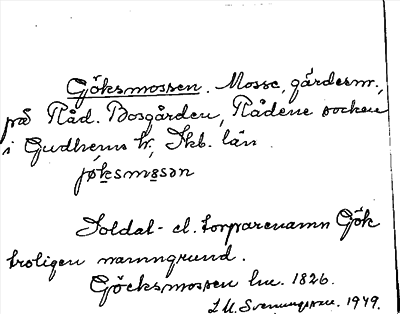 Göksmossen. Mosse, gärdesnr.,
på Råd. Bosgården, Rådene socken
i Gudhems hd, Skb. län.
jøksmɷsɷn
Soldat- el. torparenamn Gök
troligen namngrund.
Göcksmossen hu. 1826.
S. U. Svenningsson. 1949.